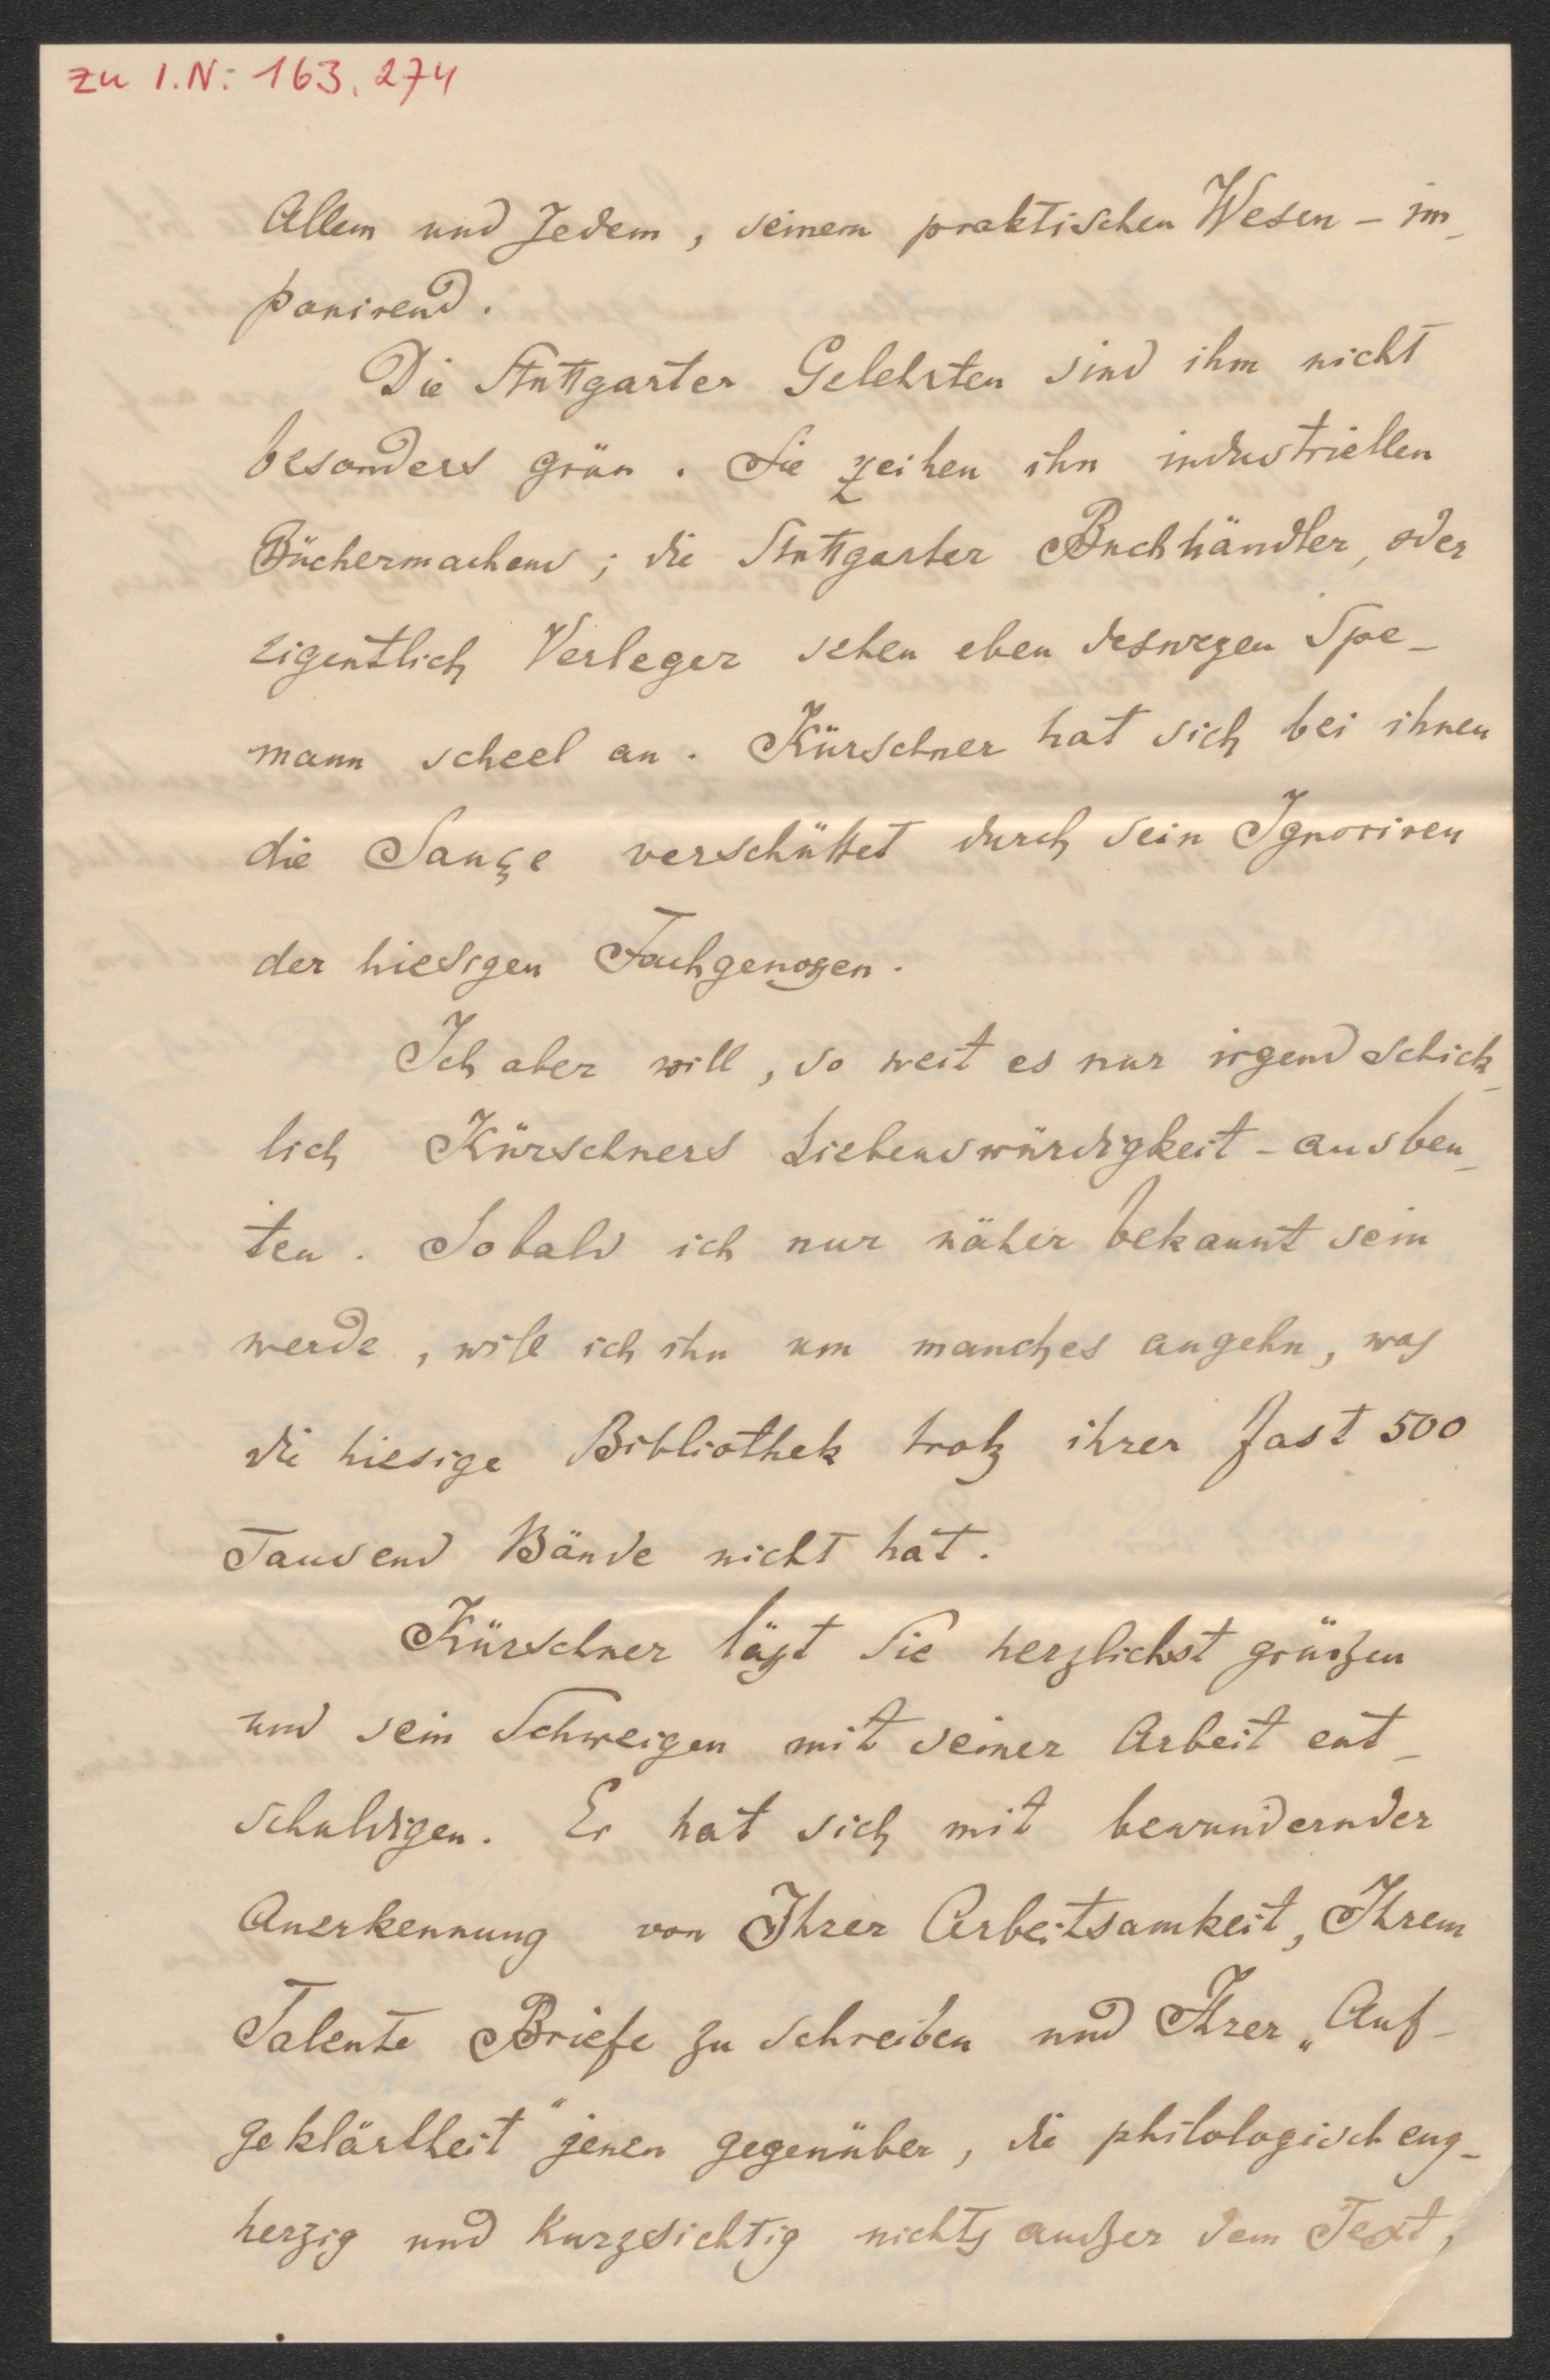 zu I.N: 163.274
Allem und Jedem, seinem praktischen Wesen – im-
ponirend.
Die Stuttgarter Gelehrten sind ihm nicht
besonders grün. Sie zeihen ihn industriellen
Büchermachens; die Stuttgarter Buchhändler, oder
eigentlich Verleger sehen eben deswegen Spe-
mann scheel an. Kürschner hat sich bei ihnen
die Sauçe verschüttet durch sein Ignoriren
der hiesigen Fachgenoßen.
Ich aber will, so weit es nur irgend schick-
lich Kürschners Liebenswürdigkeit – ausbeu-
ten. Sobald ich nur näher bekannt sein
werde, will ich ihn um manches angehn, was
die hiesige Bibliothek trotz ihrer fast 500
Tausend Bände nicht hat.
Kürschner läßt Sie herzlichst grüßen
und sein Schweigen mit seiner Arbeit ent-
schuldigen. Er hat sich mit bewundernder
Anerkennung von Ihrer Arbeitsamkeit, Ihrem
Talente Briefe zu schreiben und Ihrer „Auf-
geklärtheit" jenen gegenüber, die philologisch eng-
herzig und kurzsichtig nichts außer dem Text,